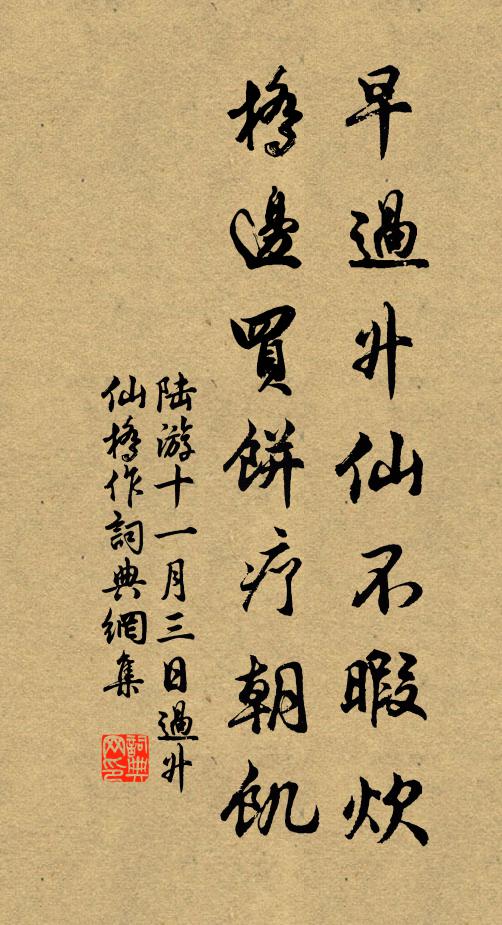 早過升仙不暇炊
橋邊買餅療朝飢
陆游十一月三日過升
仙橋作詞典網集
詞典
网印